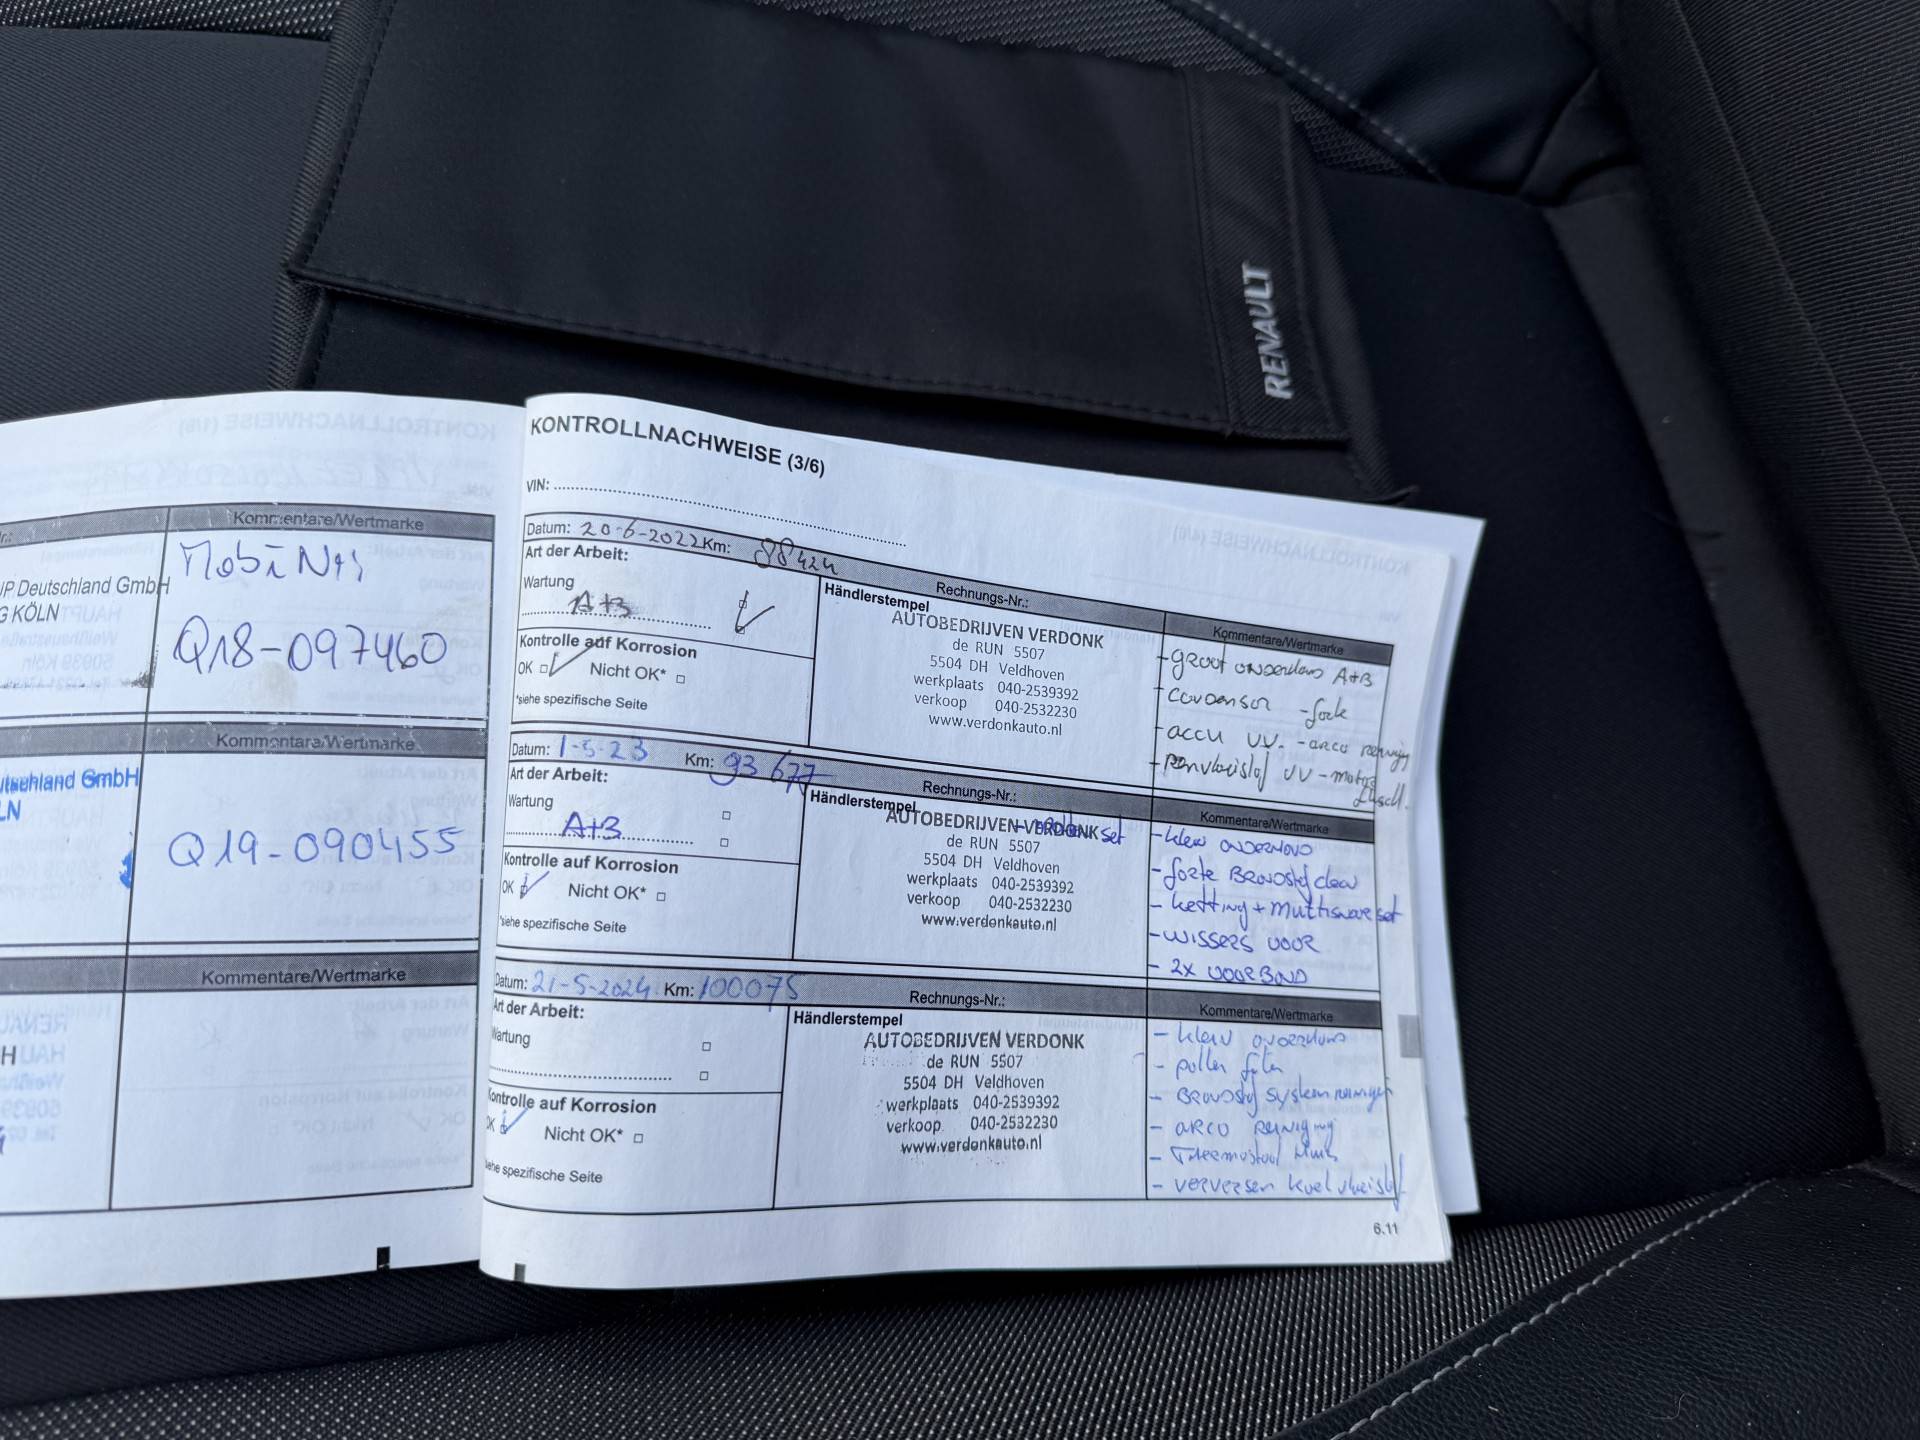 RENAULT
Kommentare/Wertmarke
UP Deutschland GmbH
G KÖLN
Q18-097460
Kommentare/Wertmarke
utschland GmbH
LN
Q19-090455
Kommentare/Wertmarke
KONTROLLNACHWEISE (3/6)
VIN:
Datum: 20-6-2022 Km: 88424
Rechnungs-Nr.:
Art der Arbeit:
Wartung
A+B
Kontrolle auf Korrosion
OK Nicht OK*
*siehe spezifische Seite
Händlerstempel
AUTOBEDRIJVEN VERDONK
de RUN 5507
5504 DH Veldhoven
werkplaats 040-2539392
verkoop 040-2532230
www.verdonkauto.nl
Kommentare/Wertmarke
- groot onderhoud A+B
- condensor - forte
- accu VV. - airco reiniging
- remvloeistof VV - motor
Datum: 1-5-23 Km: 93 677
Rechnungs-Nr.:
Art der Arbeit:
Wartung
A+B
Kontrolle auf Korrosion
OK Nicht OK*
*siehe spezifische Seite
Händlerstempel
AUTOBEDRIJVEN VERDONK
set
de RUN 5507
5504 DH Veldhoven
werkplaats 040-2539392
verkoop 040-2532230
www.verdonkauto.nl
Kommentare/Wertmarke
- klein onderhoud
- forte Brandstof clean
- ketting + multisnaar set
- WISSERS VOOR
- 2x VOORBAND
Datum: 21-5-2024 Km: 100075
Rechnungs-Nr.:
Art der Arbeit:
Wartung
Kontrolle auf Korrosion
OK Nicht OK*
siehe spezifische Seite
Händlerstempel
AUTOBEDRIJVEN VERDONK
de RUN 5507
5504 DH Veldhoven
werkplaats 040-2539392
verkoop 040-2532230
www.verdonkauto.nl
Kommentare/Wertmarke
- klein onderhoud
- pollen filter
- Brandstof systeem reinigen
- airco reiniging
- Thermostaat
- verversen koelvloeistof
6.11